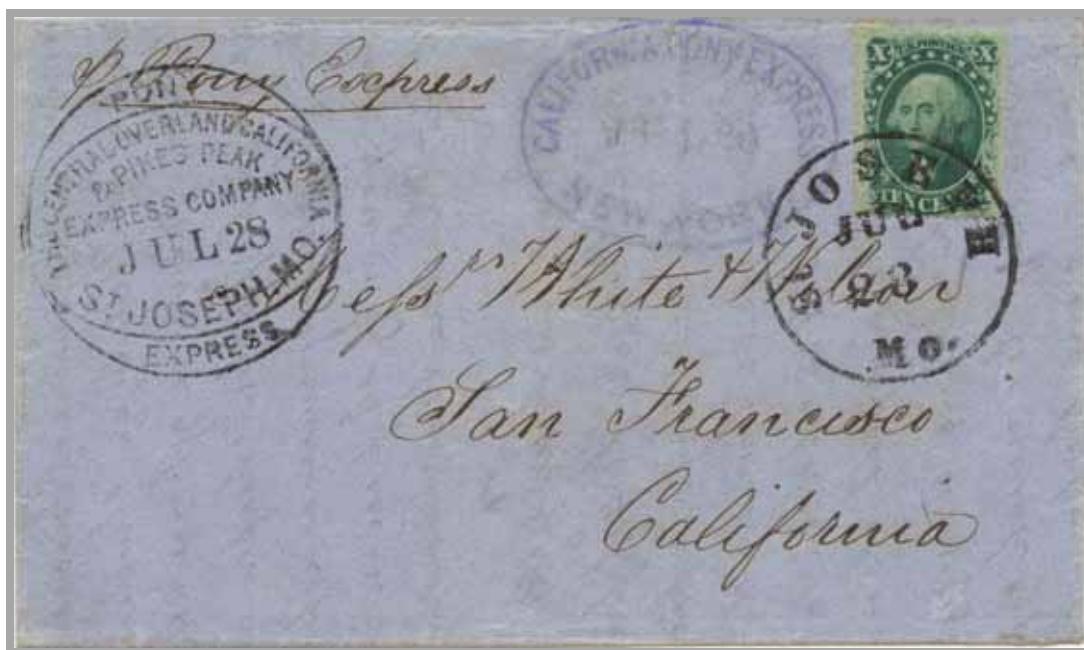 p. Pony Express
PONY
THE CENTRAL OVERLAND CALIFORNIA
& PIKES PEAK
EXPRESS COMPANY
JUL 28
ST JOSEPH, MO.
EXPRESS
CALIFORNIA PONY EXPRESS
NEW-YORK
X U.S. POSTAGE X
TEN CENTS
ST. JOSEPH
JUL
28
MO.
Messrs White &
San Francisco
California